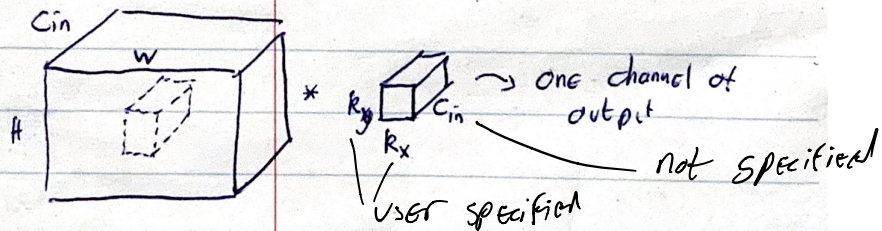 Cin
W
H
*
ky
Cin
kx
→ one channel of
output
not specified
user specified